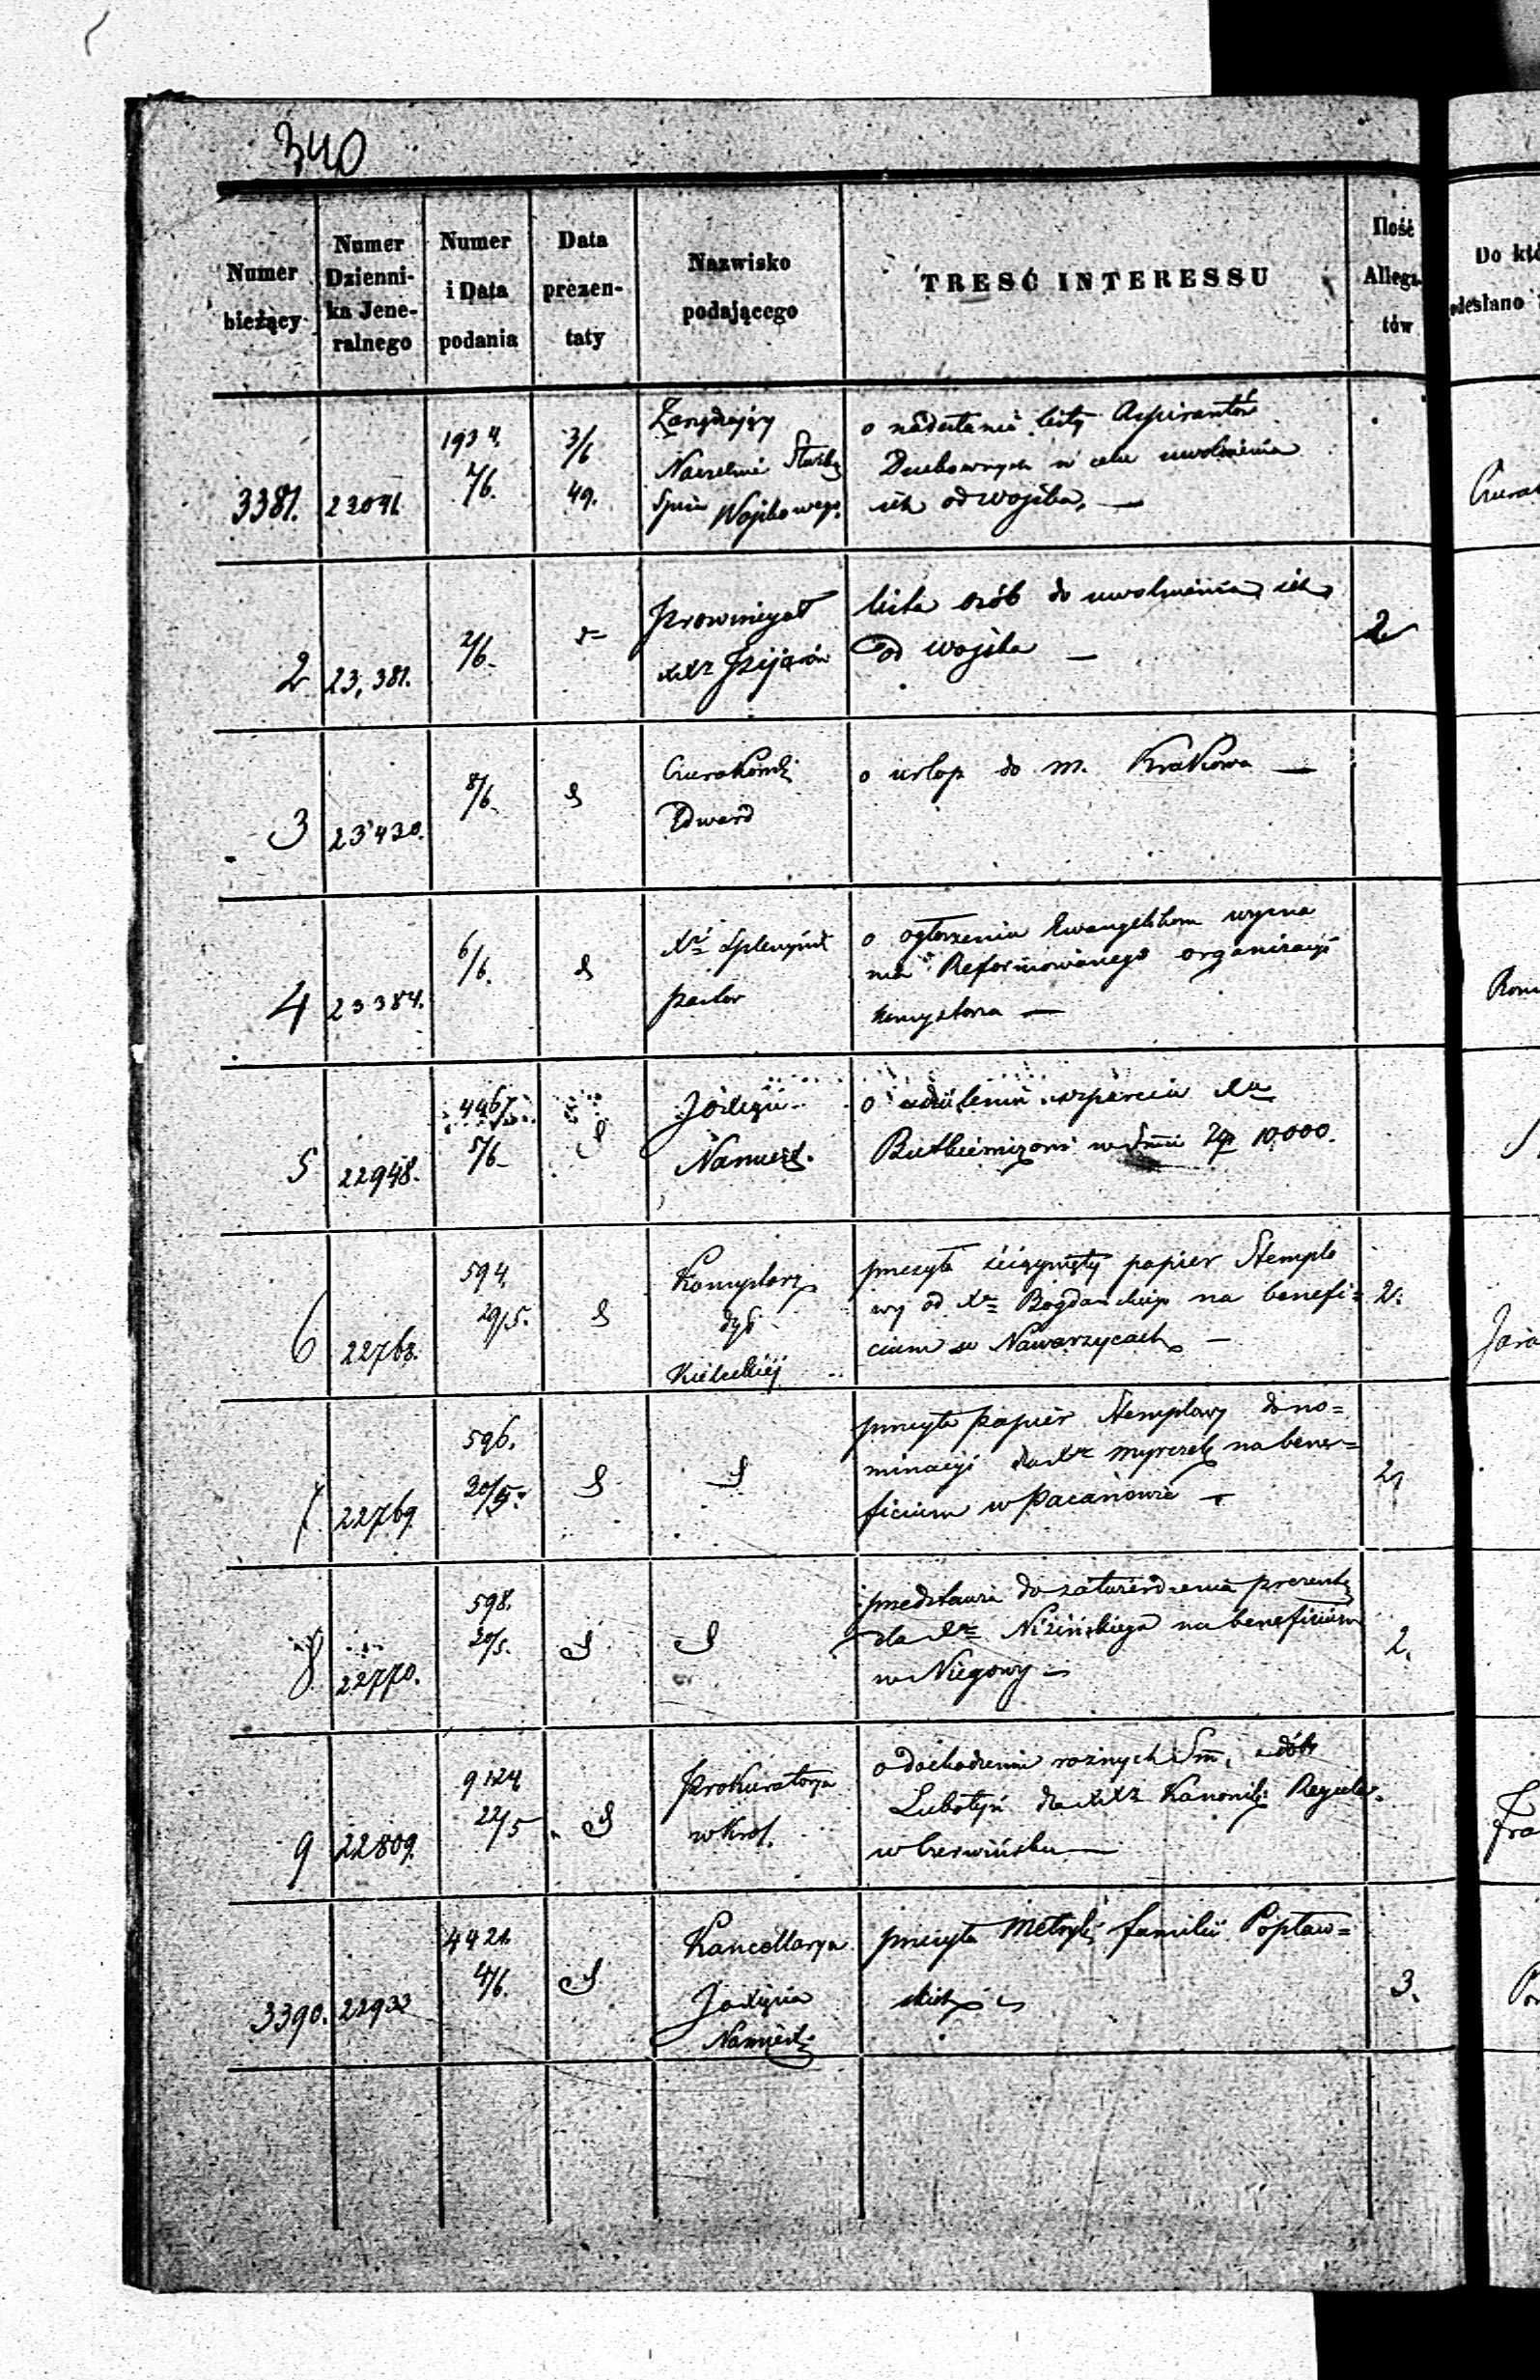 340
Numer bieżący
Numer Dzienni-
ka Jene-
ralnego
Numer
i Data
podania
Data
prezen-
taty
Nazwisko
podającego
TRESĆ INTERESSU
Ilość
Allega-
tów
Do któ
odesłano
3381.
23091.
1934.
2/6.
3/6
49.
Zarządzający
Naczelnie Służbą
Wojskowego.
o nadesłanie listy Aspirantów
Duchownych w celu uwolnienia
ich od wojska. —
2
23,381.
2/6.
Prowincyał
XXr Pijarów
lista osób do uwolnienia ich
od wojska —
2
3
23430.
8/6.
Edward
o urlop do m. Krakowa —
4
23384.
6/6.
Xdz
pastor
o ogłoszeniu Ewangelikom wyzna
nia Reformowanego organizacyi
konsystorza —
5
22948.
4967
5/6.
JO Xięcia
Namiest.
o udzielenie wsparcia Xdu
w Sumie Złp 10,000.
6
22768.
594.
29/5.
Konsystorz
dyec
Kieleckiej
przesyła ściągnięty papier Stemplo
wy od Xdza Bogdańskiego na benefi=
cium w Nawarzycach —
2.
7
22769.
596.
30/5.
przesyła papier Stemplowy do no=
minacyi dla Xdza na bene=
ficium w Pacanowie —
2
8
22770.
598.
30/5.
przedstawia do zatwierdzenia prezentę
dla Xdza Nizińskiego na beneficium
w Niegowy —
2.
9
22809.
9124
22/5
Prokuratorya
w Król.
o dochodzeniu roznych Sum, z dóbr
Lubotyń dla XXży Kanoników Regular.
w Czerwińsku —
3390.
22933
4421.
4/6.
Kancellarya
JO Xięcia
Namiest.
przesyła Metryki familii Popław=
skich
3.